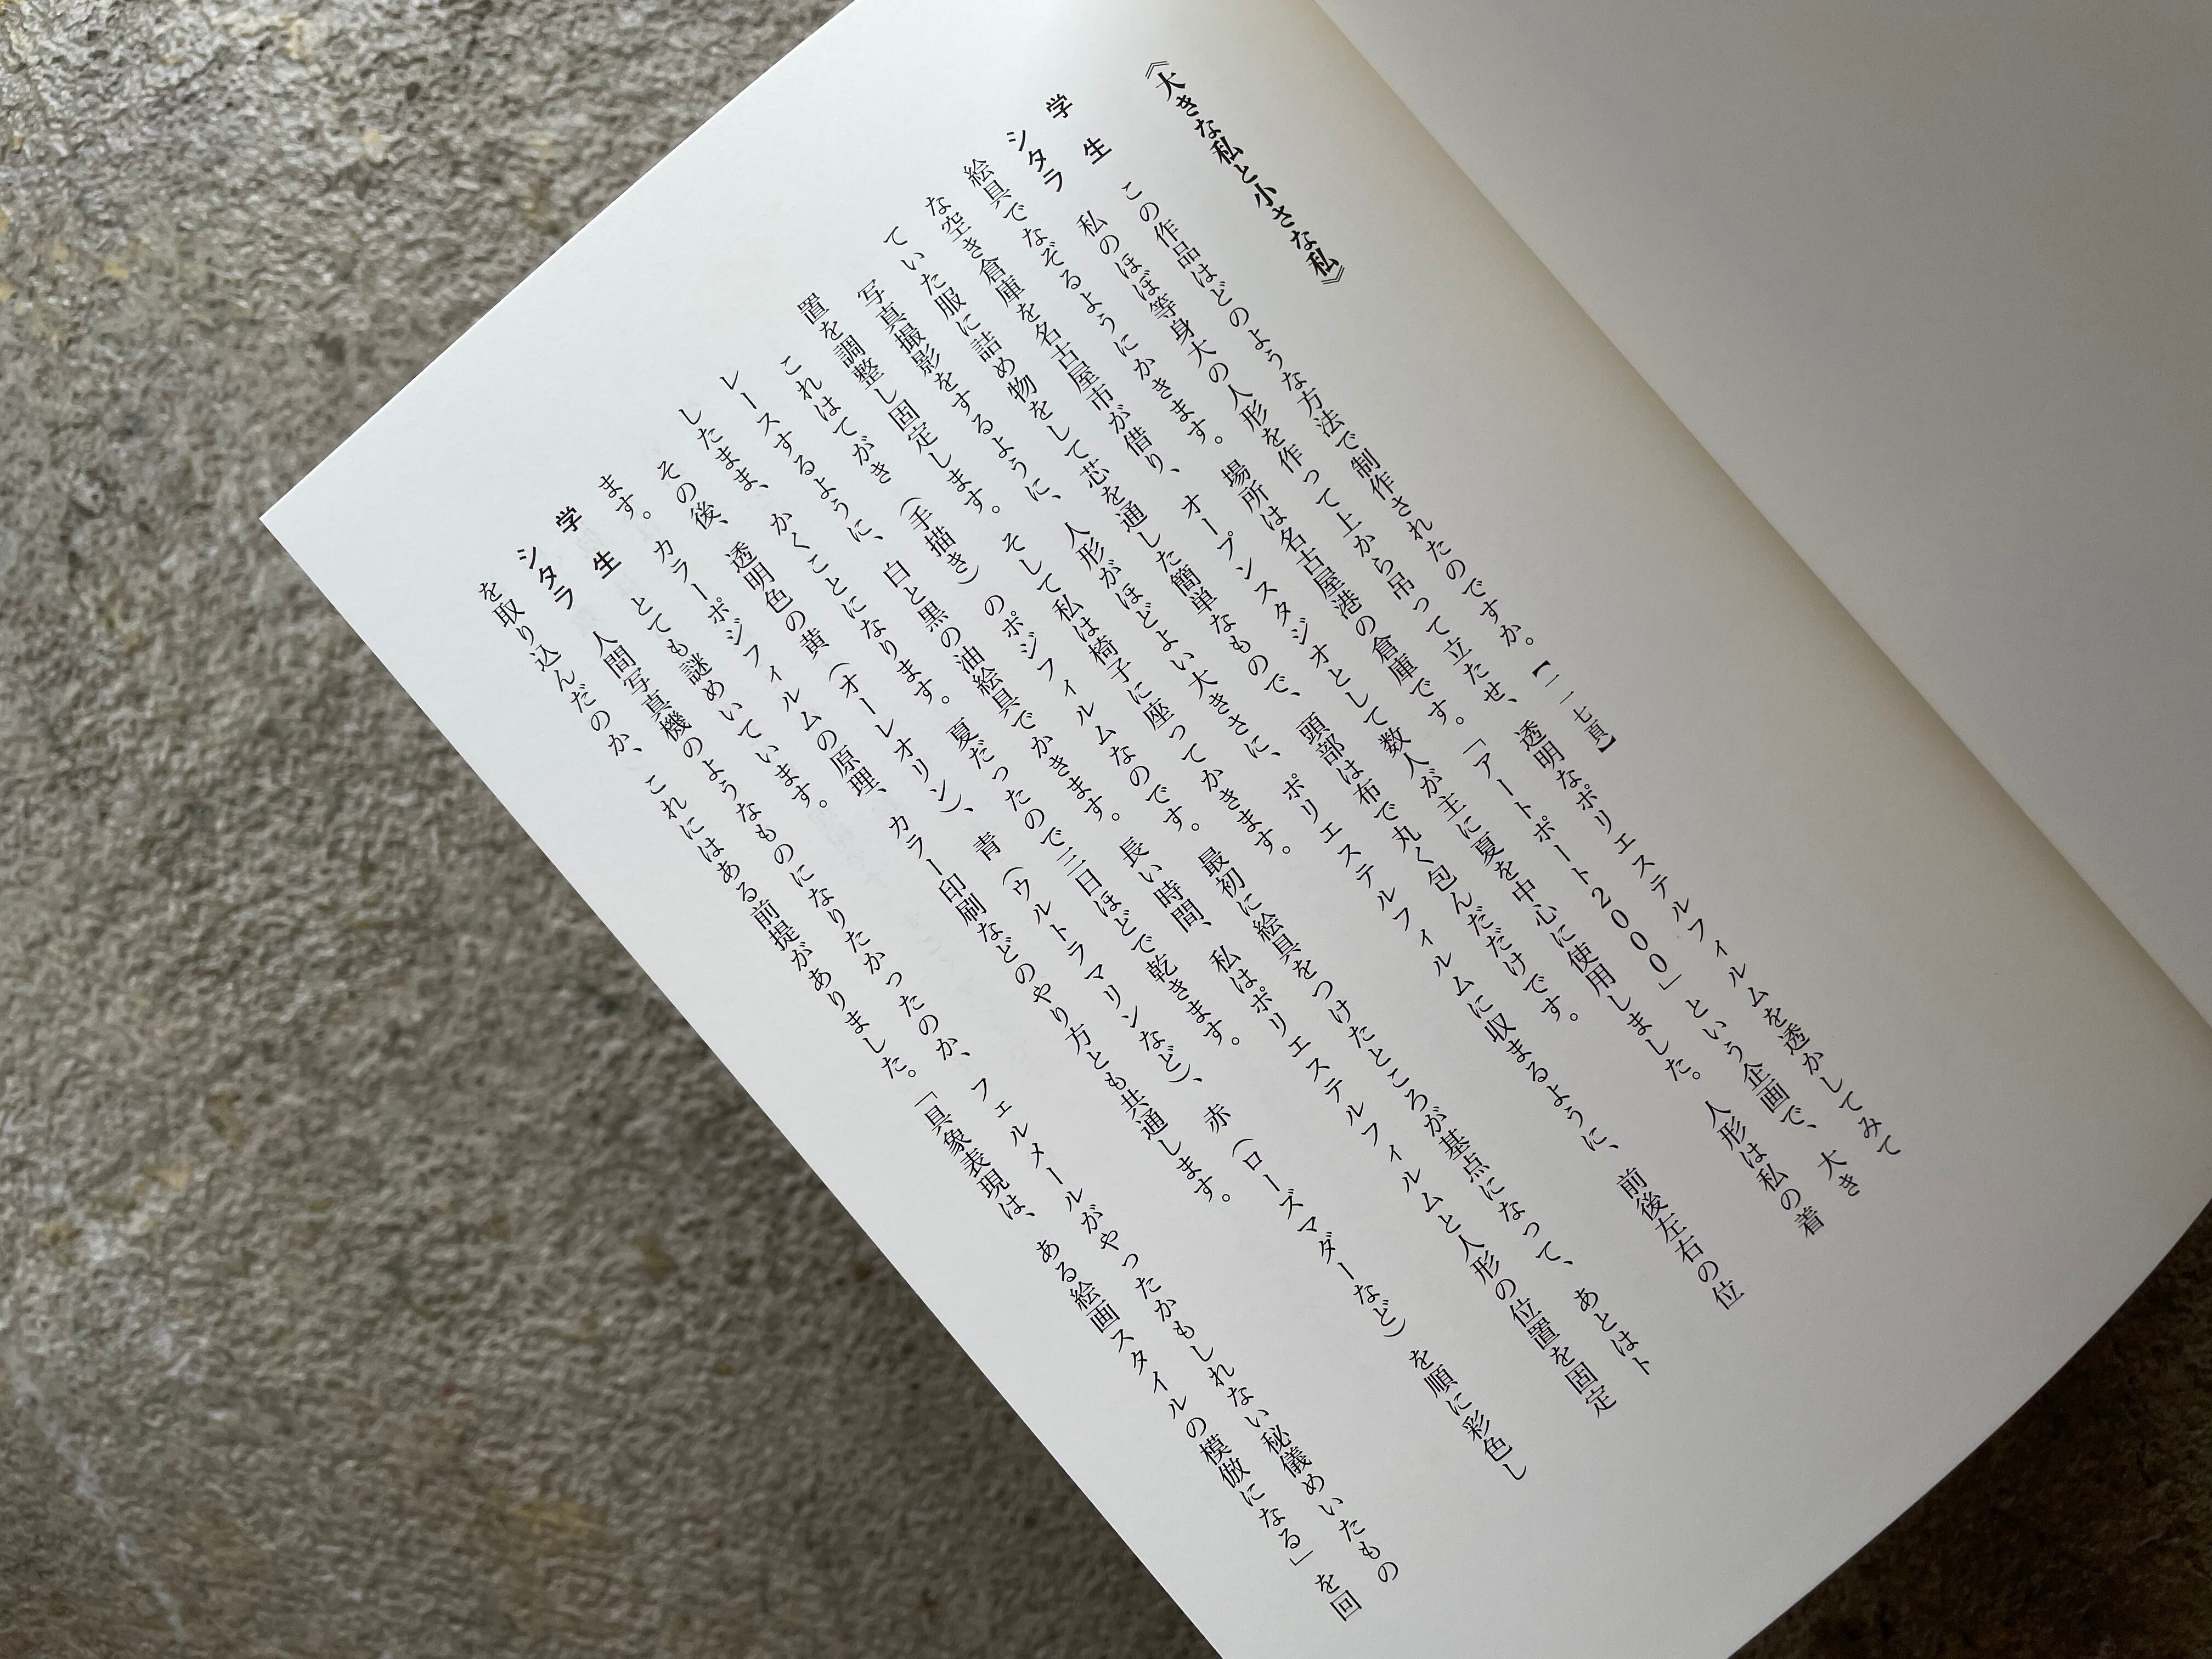 《大きな私と小さな私》
学　生　この作品はどのような方法で制作されたのですか。【一一七頁】
シタラ　私のほぼ等身大の人形を作って上から吊って立たせ、透明なポリエステルフィルムを透かしてみて
絵具でなぞるようにかきます。場所は名古屋港の倉庫です。「アートポート2000」という企画で、大き
な空き倉庫を名古屋市が借り、オープンスタジオとして数人が主に夏を中心に使用しました。人形は私の着
ていた服に詰め物をして芯を通した簡単なもので、頭部は布で丸く包んだだけです。
写真撮影をするように、人形がほどよい大きさに、ポリエステルフィルムに収まるように、前後左右の位
置を調整し固定します。そして私は椅子に座ってかきます。最初に絵具をつけたところが基点になって、あとはト
レースするように、白と黒の油絵具でかきます。長い時間、私はポリエステルフィルムと人形の位置を固定
したまま、かくことになります。夏だったので三日ほどで乾きます。
その後、透明色の黄（オーレオリン）、青（ウルトラマリンなど）、赤（ローズマダーなど）を順に彩色し
ます。カラーポジフィルムの原理、カラー印刷などのやり方とも共通します。
学　生　とても謎めいています。
シタラ　人間写真機のようなものになりたかったのか、フェルメールがやったかもしれない秘儀めいたもの
を取り込んだのか、これにはある前提がありました。「具象表現は、ある絵画スタイルの模倣になる」を回